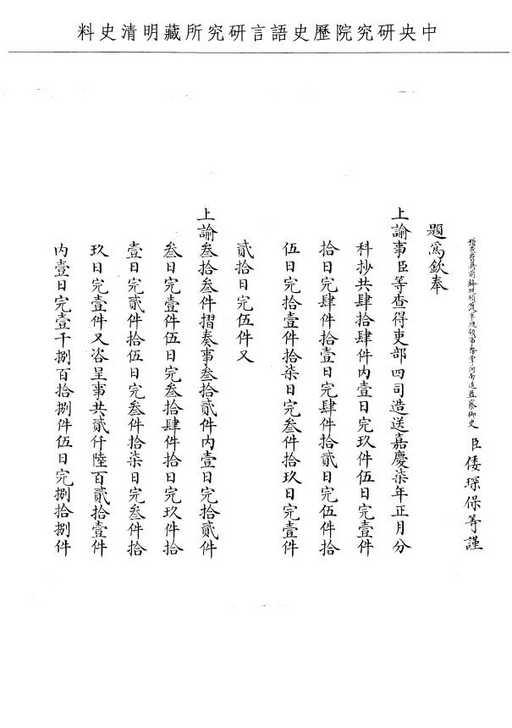 中央研究院歷史語言研究所藏明清史料
臣倭琛保等謹
題為欽奉
上諭事臣等查得吏部四司造送嘉慶柒年正月分
科抄共肆拾肆件內壹日完玖件伍日完壹件
拾日完肆件拾壹日完肆件拾貳日完伍件拾
伍日完拾壹件拾柒日完叁件拾玖日完壹件
貳拾日完伍件又
上諭叁拾叁件摺奏事叁拾貳件內壹日完拾貳件
叁日完壹件伍日完叁拾肆件拾日完玖件拾
壹日完貳件拾伍日完叁件拾柒日完叁件拾
玖日完壹件又咨呈事共貳仟陸百貳拾壹件
內壹日完壹千捌百拾捌件伍日完捌拾捌件